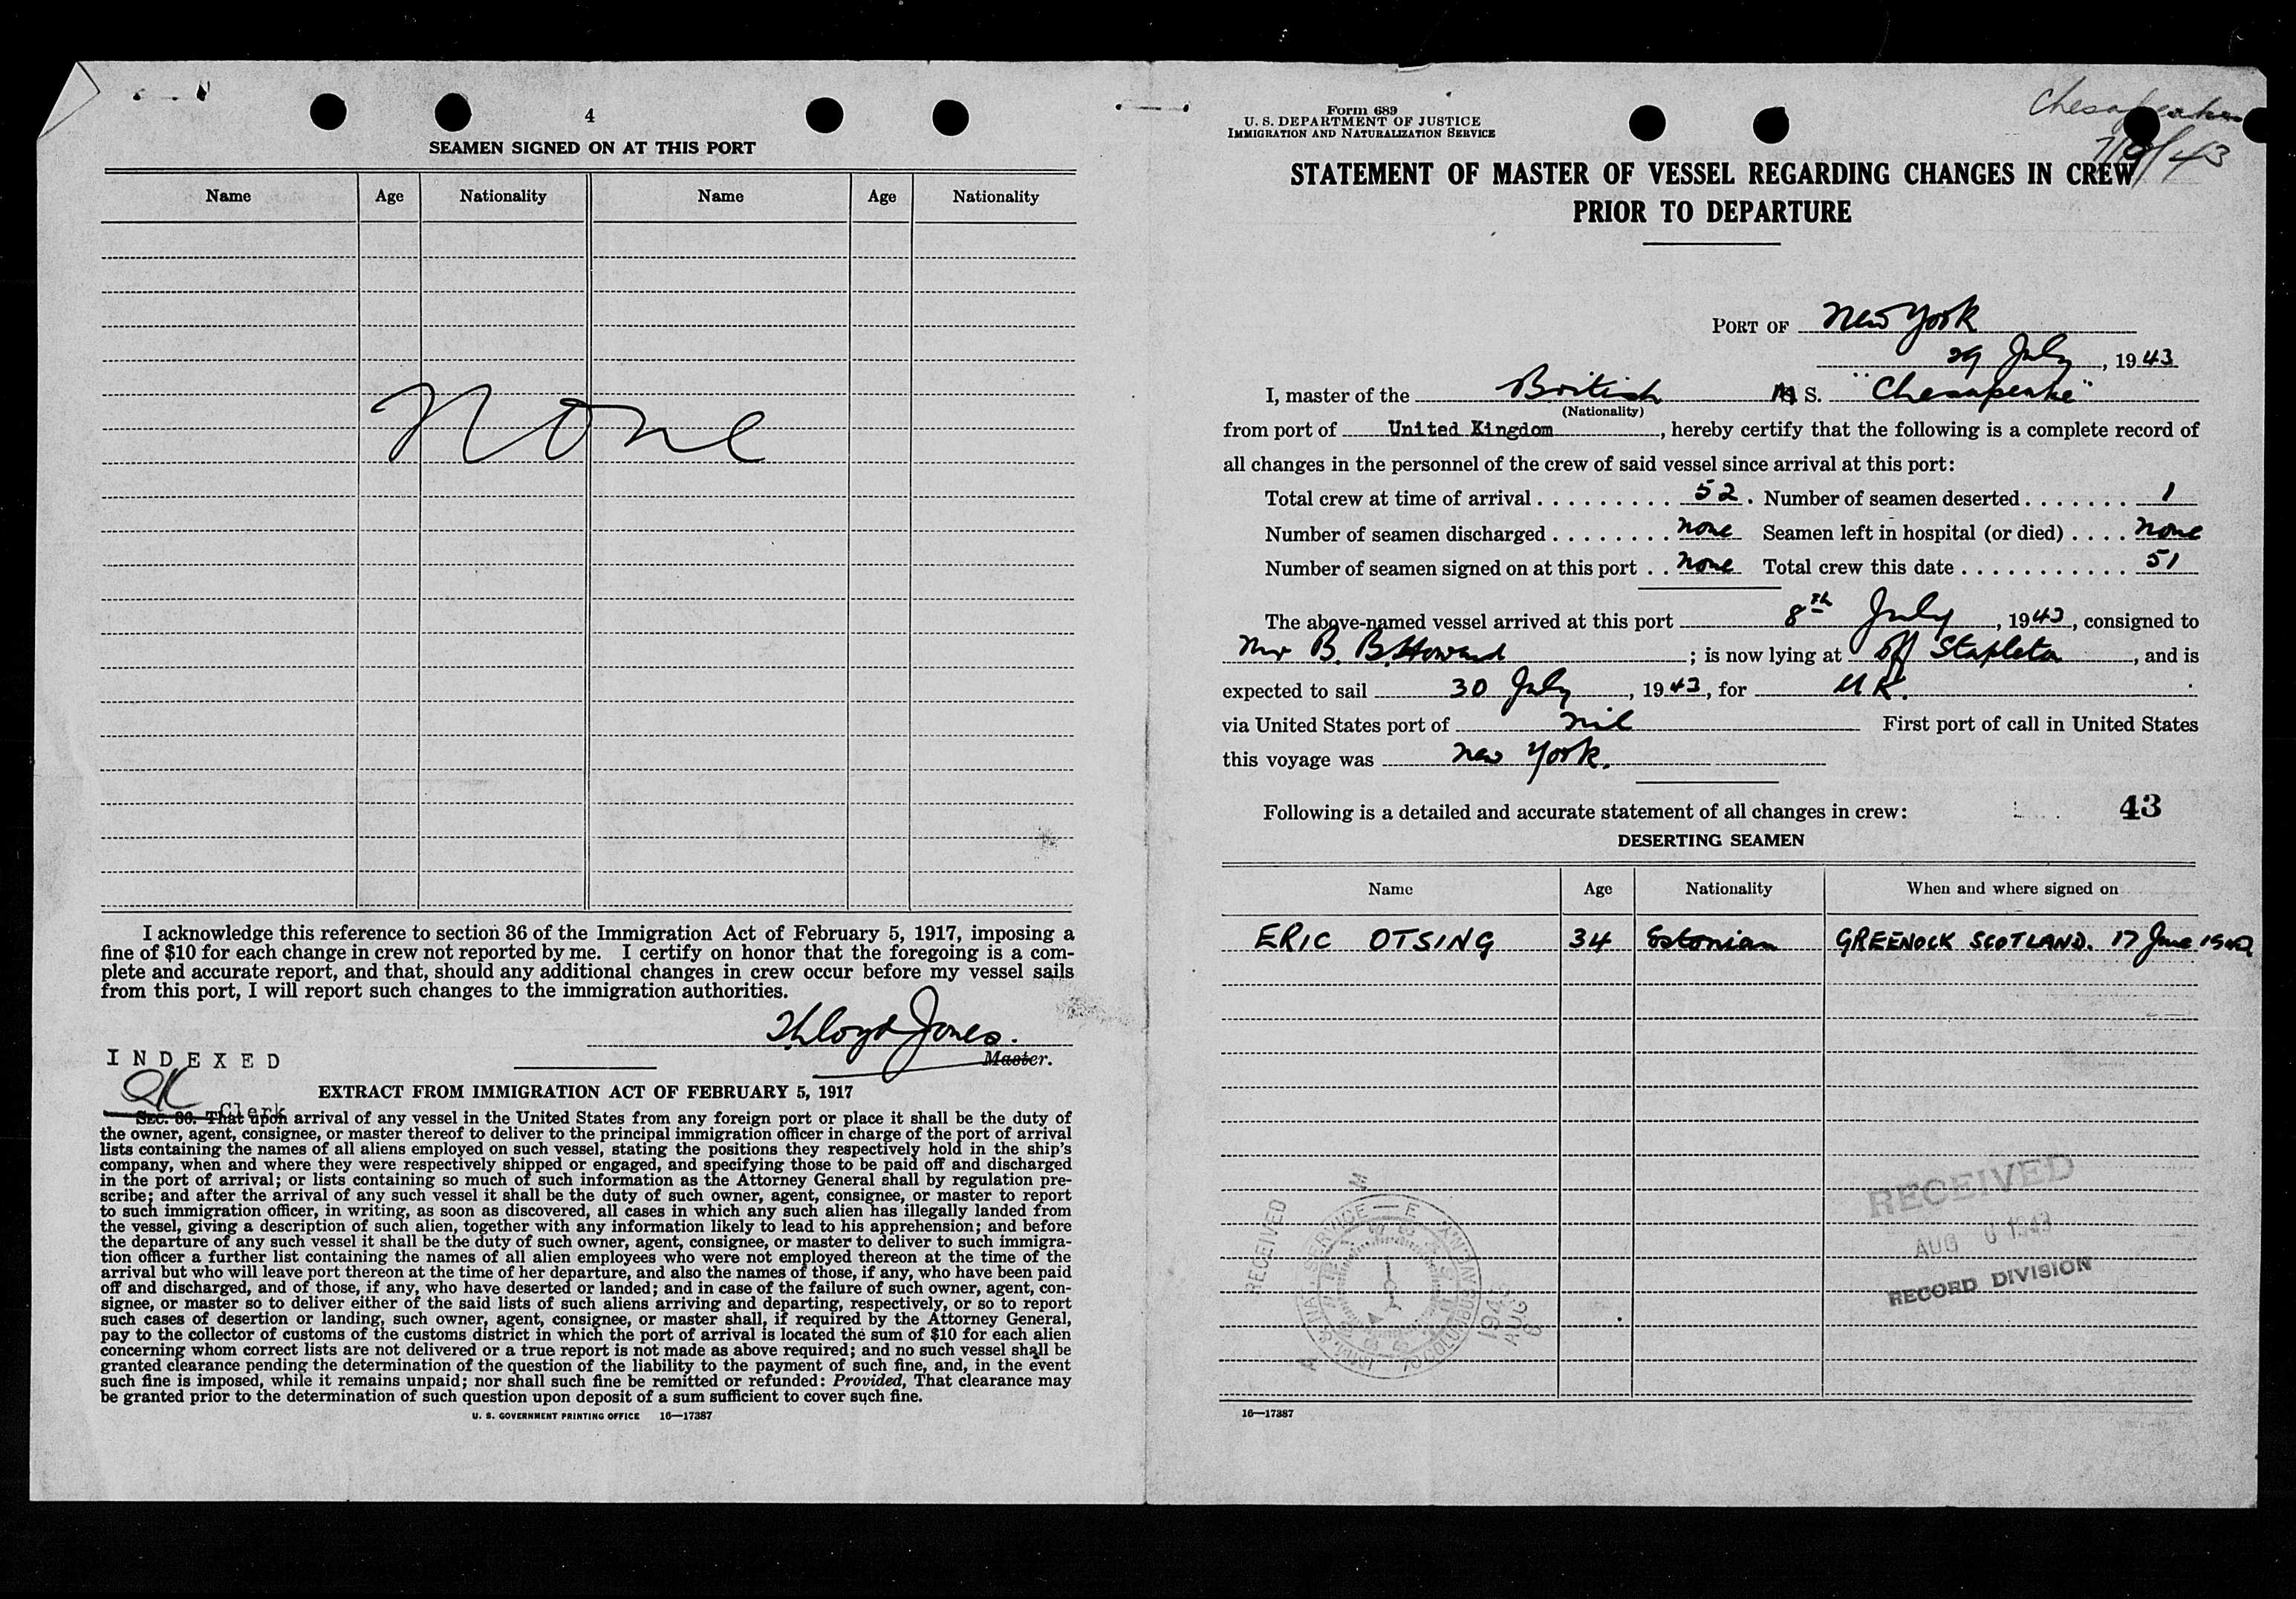 4
SEAMEN SIGNED ON AT THIS PORT
Name Age Nationality Name Age Nationality
None
I acknowledge this reference to section 36 of the Immigration Act of February 5, 1917, imposing a
fine of $10 for each change in crew not reported by me. I certify on honor that the foregoing is a com-
plete and accurate report, and that, should any additional changes in crew occur before my vessel sails
from this port, I will report such changes to the immigration authorities.
Lloyd Jones.
Master.
INDEXED
Clerk
EXTRACT FROM IMMIGRATION ACT OF FEBRUARY 5, 1917
SEC. 36. That upon arrival of any vessel in the United States from any foreign port or place it shall be the duty of
the owner, agent, consignee, or master thereof to deliver to the principal immigration officer in charge of the port of arrival
lists containing the names of all aliens employed on such vessel, stating the positions they respectively hold in the ship's
company, when and where they were respectively shipped or engaged, and specifying those to be paid off and discharged
in the port of arrival; or lists containing so much of such information as the Attorney General shall by regulation pre-
scribe; and after the arrival of any such vessel it shall be the duty of such owner, agent, consignee, or master to report
to such immigration officer, in writing, as soon as discovered, all cases in which any such alien has illegally landed from
the vessel, giving a description of such alien, together with any information likely to lead to his apprehension; and before
the departure of any such vessel it shall be the duty of such owner, agent, consignee, or master to deliver to such immigra-
tion officer a further list containing the names of all alien employees who were not employed thereon at the time of the
arrival but who will leave port thereon at the time of her departure, and also the names of those, if any, who have been paid
off and discharged, and of those, if any, who have deserted or landed; and in case of the failure of such owner, agent, con-
signee, or master so to deliver either of the said lists of such aliens arriving and departing, respectively, or so to report
such cases of desertion or landing, such owner, agent, consignee, or master shall, if required by the Attorney General,
pay to the collector of customs of the customs district in which the port of arrival is located the sum of $10 for each alien
concerning whom correct lists are not delivered or a true report is not made as above required; and no such vessel shall be
granted clearance pending the determination of the question of the liability to the payment of such fine, and, in the event
such fine is imposed, while it remains unpaid; nor shall such fine be remitted or refunded: Provided, That clearance may
be granted prior to the determination of such question upon deposit of a sum sufficient to cover such fine.
U. S. GOVERNMENT PRINTING OFFICE 16—17387
Form 689
U. S. DEPARTMENT OF JUSTICE
IMMIGRATION AND NATURALIZATION SERVICE
Chesapeake
STATEMENT OF MASTER OF VESSEL REGARDING CHANGES IN CREW
PRIOR TO DEPARTURE
PORT OF New York
29 July, 1943
I, master of the British M S. "Chesapeake"
(Nationality)
from port of United Kingdom, hereby certify that the following is a complete record of
all changes in the personnel of the crew of said vessel since arrival at this port:
Total crew at time of arrival . . . . . . . . . . 52 . Number of seamen deserted . . . . . . . 1
Number of seamen discharged . . . . . . . . none Seamen left in hospital (or died) . . . . none
Number of seamen signed on at this port . . none Total crew this date . . . . . . . . . . . . 51
The above-named vessel arrived at this port 8th July, 1943, consigned to
Mr B. B. Howard; is now lying at off Stapleton, and is
expected to sail 30 July, 1943, for U K.
via United States port of nil First port of call in United States
this voyage was New York.
Following is a detailed and accurate statement of all changes in crew: 43
DESERTING SEAMEN
Name Age Nationality When and where signed on
ERIC OTSING 34 Estonian GREENOCK SCOTLAND. 17 June
RECEIVED
AUG 6 1943
RECORD DIVISION
RECEIVED
70 COLUMBUS AVE. N.Y.
1943
AUG 6
16—17387